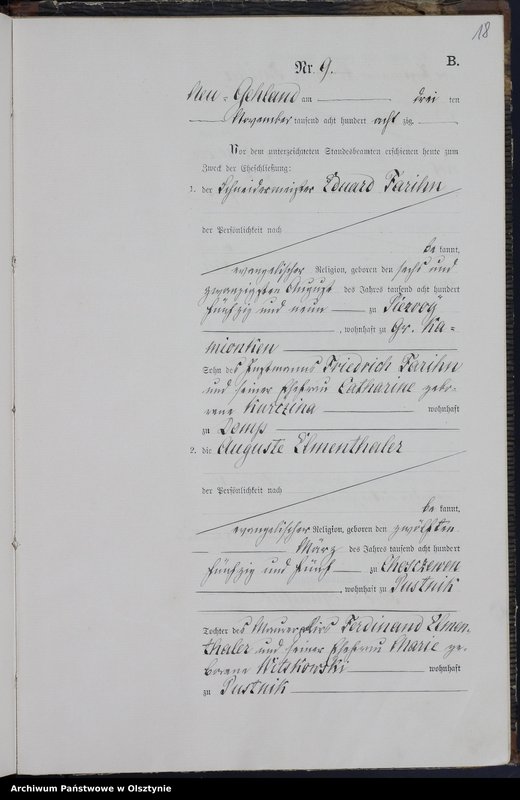 18
B.
Nr. 9.
Neu-Gehland am drei ten
November tausend acht hundert acht zig.
Vor dem unterzeichneten Standesbeamten erschienen heute zum
Zweck der Eheschließung:
1. der Schneidermeister Eduard Farihn
der Persönlichkeit nach
be kannt,
evangelischer Religion, geboren den sechs und
zwanzigsten August des Jahres tausend acht hundert
fünfzig und neun zu
, wohnhaft zu Gr. Ka=
mionken
Sohn des Instmanns Friedrich Farihn
und seiner Ehefrau Catharine gebo-
rene Kurczina wohnhaft
zu Domp
2. die Auguste Elmenthaler
der Persönlichkeit nach
be kannt,
evangelischer Religion, geboren den zwölften
März des Jahres tausend acht hundert
fünfzig und fünf zu Choszewen
, wohnhaft zu Pustnik
Tochter des Ferdinand Elmen-
thaler und seiner Ehefrau Marie ge-
borene Witzkowski wohnhaft
zu Pustnik
Archiwum Państwowe w Olsztynie